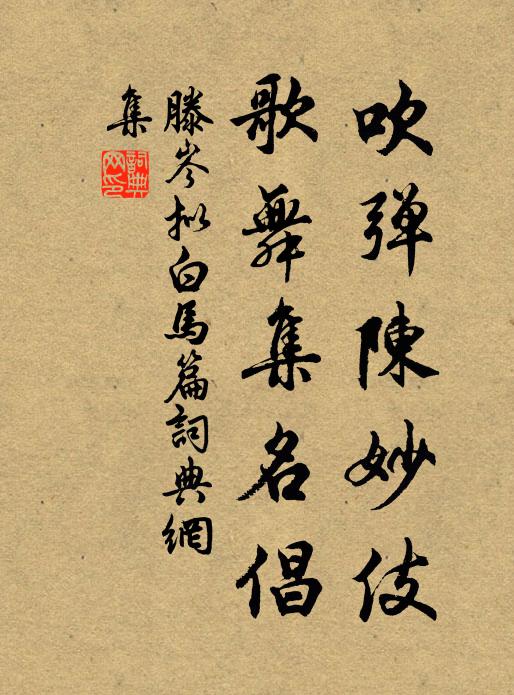 吹弹陳妙伎
歌舞集名倡
滕岑拟白馬篇詞典網
集
詞典
网印